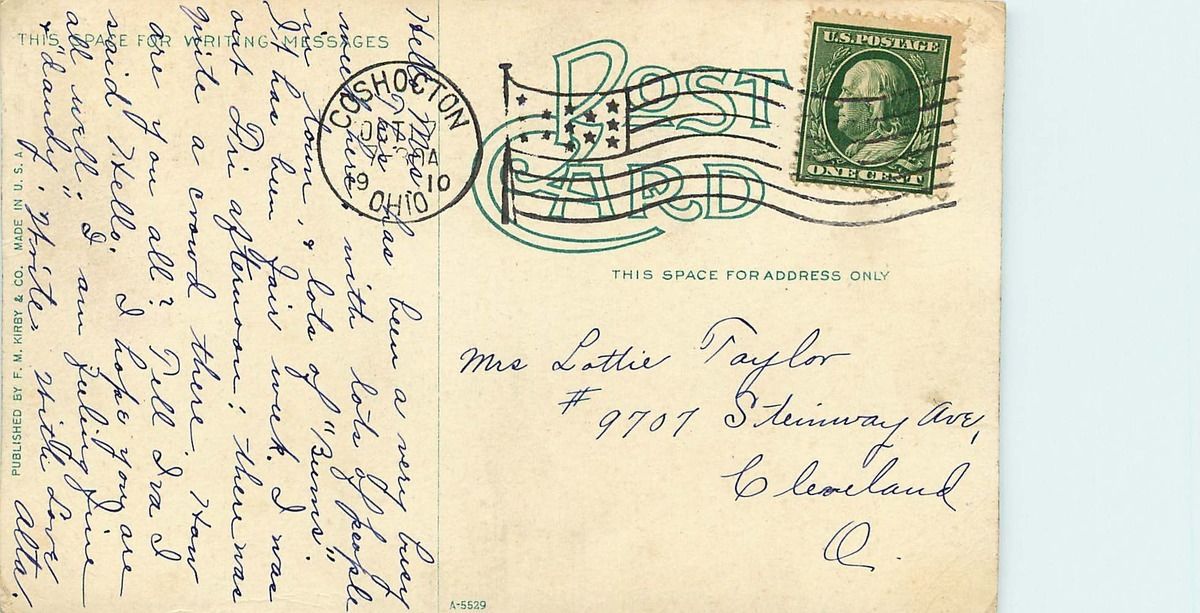 THIS SPACE FOR WRITING MESSAGES
POST
CARD
U.S. POSTAGE
ONE CENT
COSHOCTON
OHIO
THIS SPACE FOR ADDRESS ONLY
Mrs Lottie Taylor
# 9707 Steinway Ave,
Cleveland
O.
Hello Mrs.
This has been a very busy
week here. with lots of people
in town, & lots of "Bums".
It has been fair week. I was
out Fri afternoon; there was
quite a crowd there. How
are you all? Tell Ira I
said Hello. I hope you are
all well. I am feeling fine
& "dandy". Write. With Love
Alta.
PUBLISHED BY F. M. KIRBY & CO. MADE IN U. S. A.
A-5529